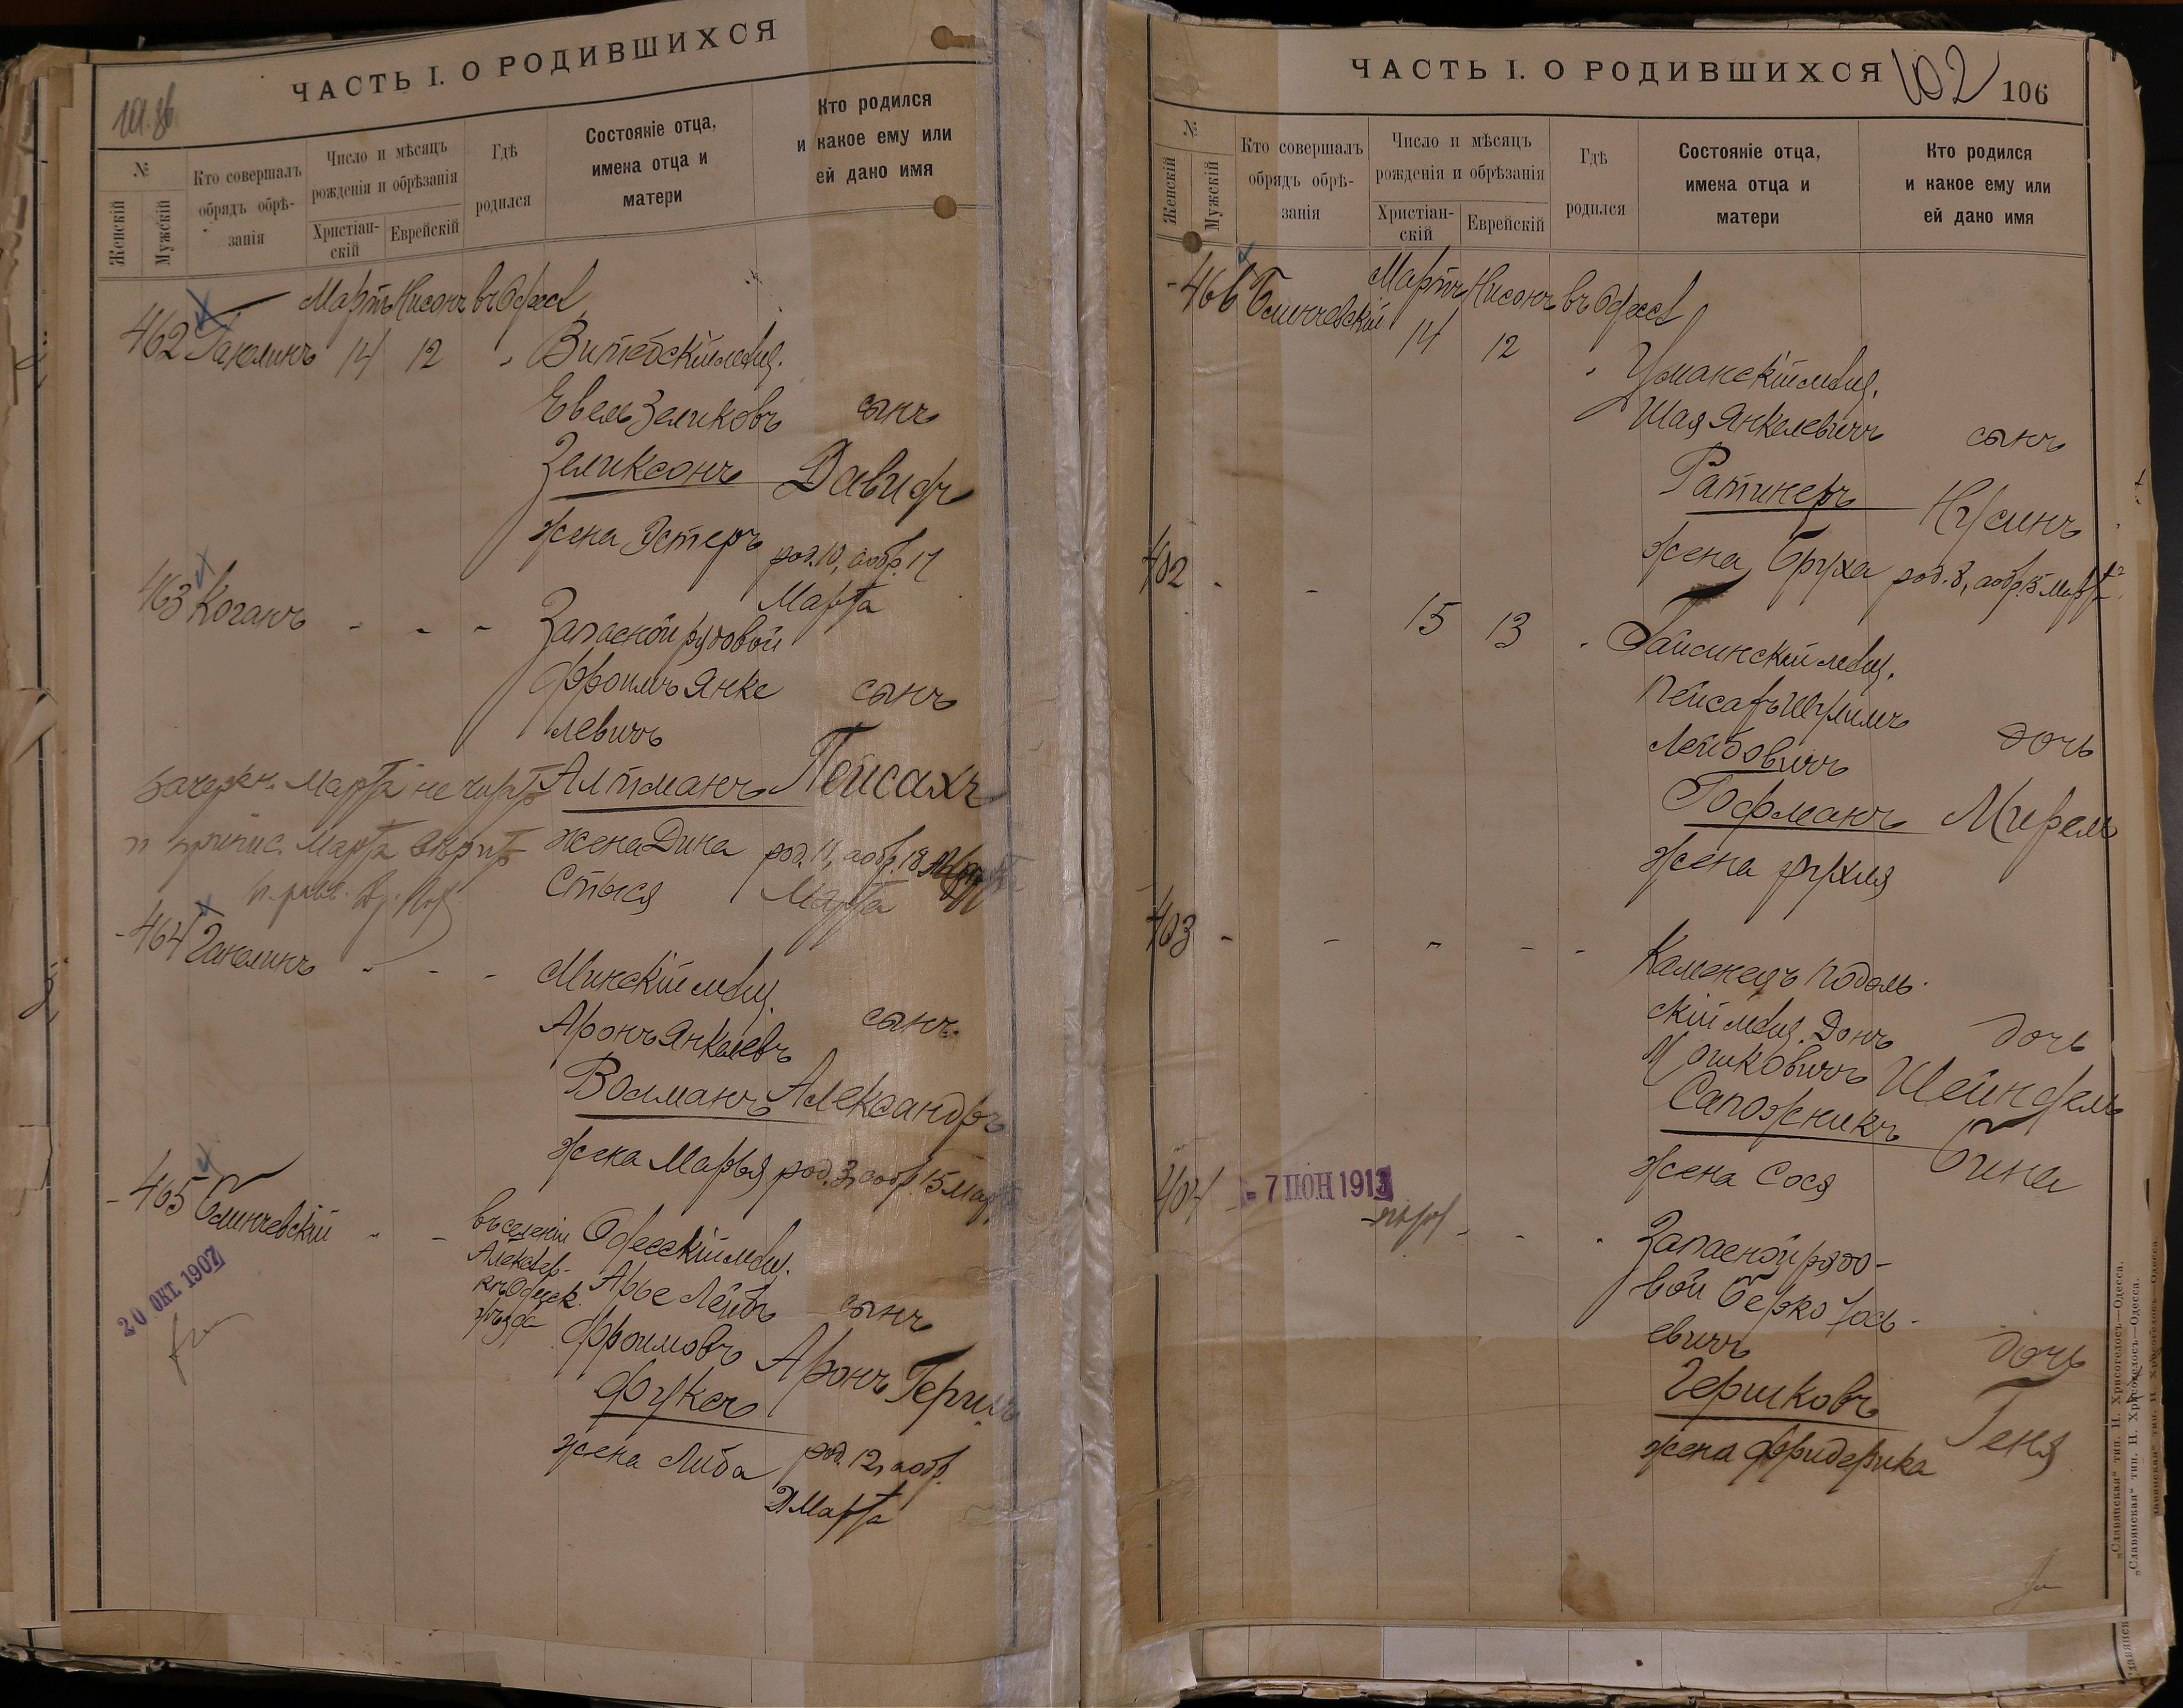 ЧАСТЬ I. О РОДИВШИХСЯ
№
Женскій
Мужскій
Кто совершалъ
обрядъ обрѣ-
занія
Число и мѣсяцъ
рожденія и обрѣзанія
Христіан-
скій
Еврейскій
Гдѣ
родился
Состояніе отца,
имена отца и
матери
Кто родился
и какое ему или
ей дано имя
Мартъ Нисонъ въ Одессѣ
462 Гаклинъ 14 12 Витебскій мѣщ.
Евель Зеликовъ сынъ
Зеликсонъ Давидъ
жена Эстеръ род. 10, а обр. 17
Марта
463 Коганъ - - - Запасной рядовой
Фроимъ Янке сынъ
левичъ
Альтманъ Пейсахъ
жена Дина род. 11, а обр. 18
Стыся Марта
зачеркн. Марта не читать
и припис. Марта вѣрить
464 Гаклинъ - - - Минскій мѣщ.
Аронъ Янкелевъ сынъ
Волманъ Александръ
жена Марья род. 3, а обр. 15 Марта
465 Блинчевскій - - въ селеніи Одесскій мѣщ.
Арье Лейбъ сынъ
Фроимовъ Аронъ Герш
уѣзда
Фуксъ
жена Либа род. 12, а обр.
Марта
20 ОКТ. 1907
ЧАСТЬ I. О РОДИВШИХСЯ
102
106
№
Женскій
Мужскій
Кто совершалъ
обрядъ обрѣ-
занія
Число и мѣсяцъ
рожденія и обрѣзанія
Христіан-
скій
Еврейскій
Гдѣ
родился
Состояніе отца,
имена отца и
матери
Кто родился
и какое ему или
ей дано имя
Мартъ Нисонъ въ Одессѣ
466 Блинчевскій 14 12 Уманскій мѣщ.
Шая Янкелевичъ сынъ
Ратинеръ Нусинъ
жена Бруха род. 8, а обр. 15 Марта
402 - - 15 13 Гайсинскій мѣщ.
Пейсахъ Шулимъ
Лейбовичъ дочь
Гофманъ Мирель
жена Рухля
403 - - - - - Каменецъ Подоль-
скій мѣщ. Донъ дочь
Мошковичъ Шейндель
Сапожникъ Бина
жена Сося
404 - - - Запасной рядо-
вой Берко Іось-
евичъ дочь
Гершковъ Геня
жена Фридерика
- 7 ІЮН 1913
„Славянская“ тип. Н. Хрисогелосъ—Одесса.
„Славянская“ тип. Н. Хрисогелосъ—Одесса.